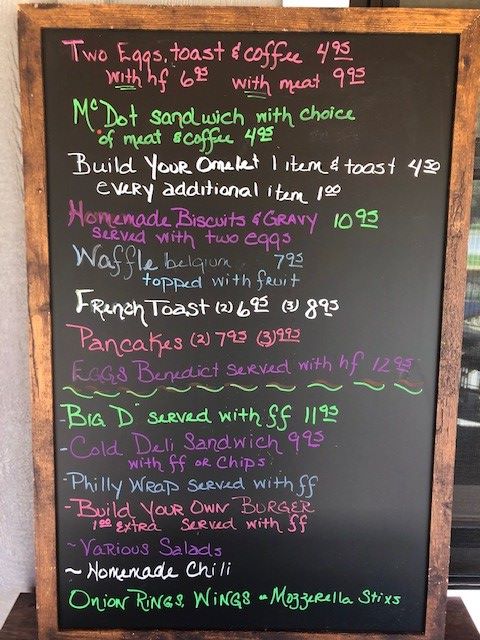 Two Eggs, toast & coffee 4.95
with hf 6.95 with meat 9.95
McDot sandwich with choice
of meat & coffee 4.95
Build Your Omelet 1 item & toast 4.50
every additional item 1.00
Homemade Biscuits & Gravy 10.95
served with two eggs
Waffle belgium 7.95
topped with fruit
French Toast (2) 6.95 (3) 8.95
Pancakes (2) 7.95 (3) 9.95
Eggs Benedict served with hf 12.95
-Big D served with ff 11.95
-Cold Deli Sandwich 9.95
with ff or chips
-Philly Wrap served with ff
-Build Your Own Burger
1.00 extra served with ff
~Various Salads
~Homemade Chili
Onion Rings, Wings - Mozzerella Stixs